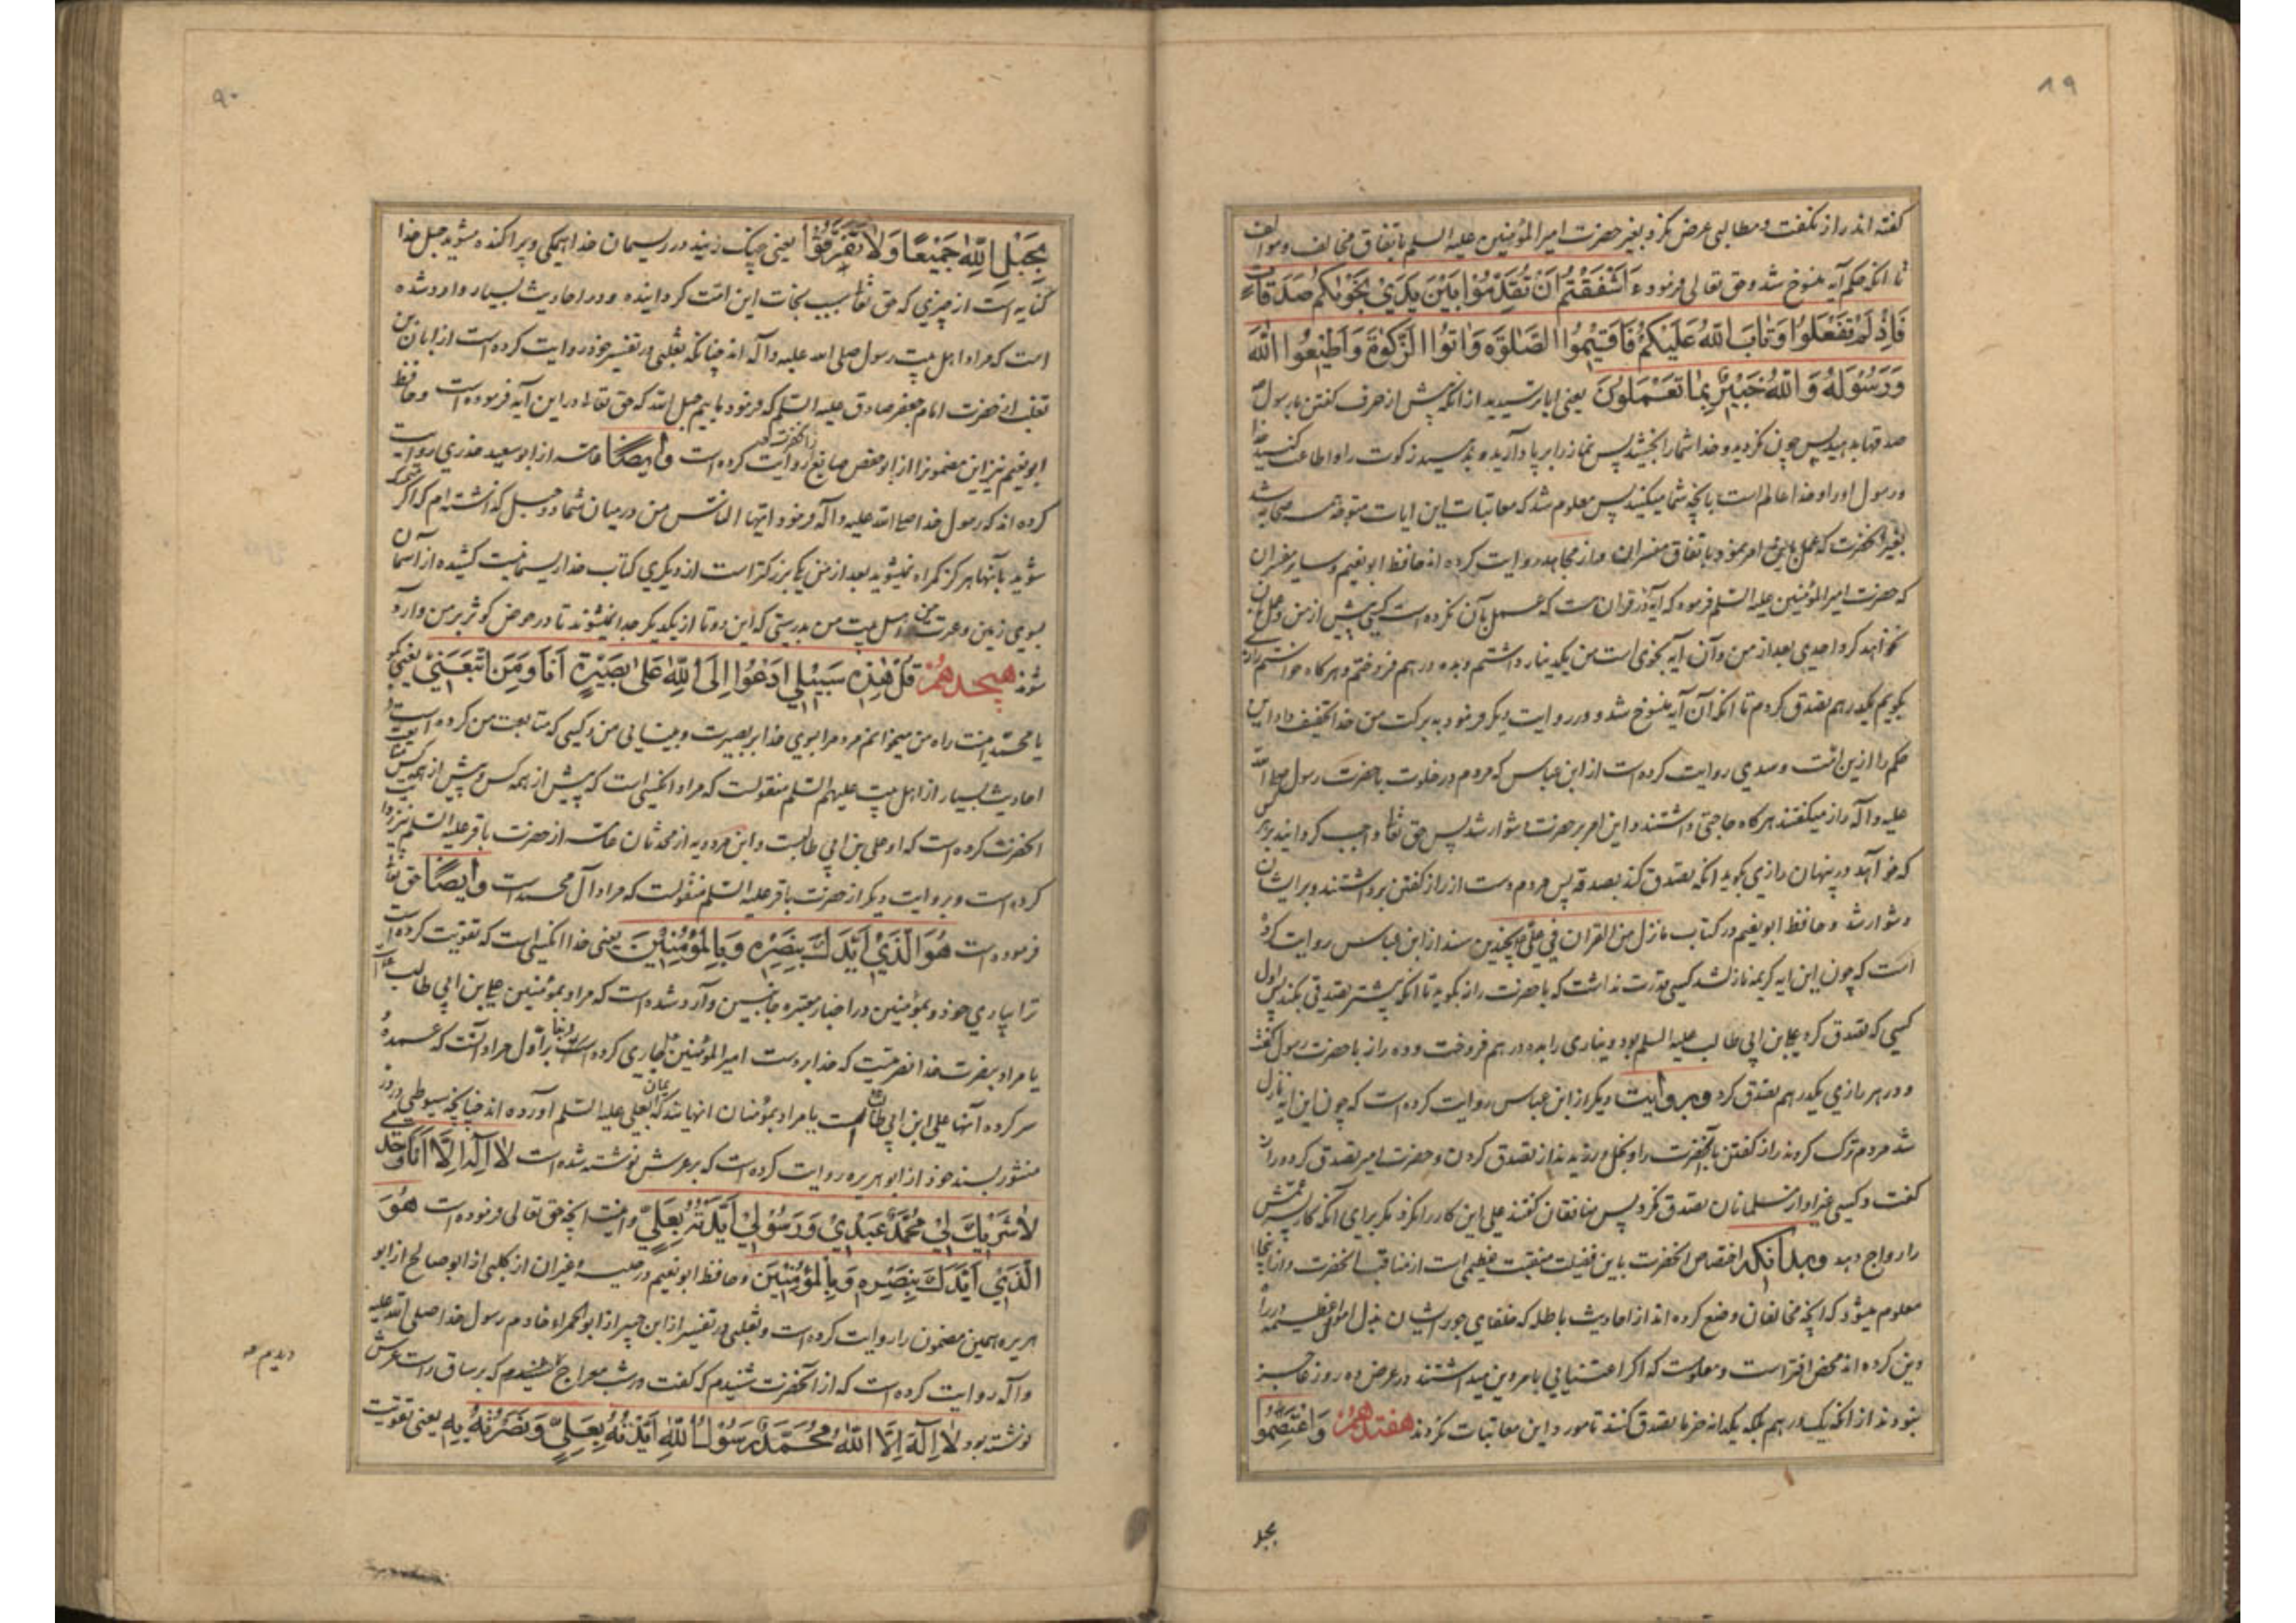 ۸۹
گفته اند راز نگفت و مطالبی عرض نکرد بغیر حضرت امیرالمؤمنین علیه السلم باتفاق مخالف و مؤالف
تا انکه حکم آیه منسوخ شد و حق تعالی فرمود ءَاَشْفَقْتُمْ اَنْ تُقَدِّمُوْا بَیْنَ یَدَیْ نَجْوٰیکُمْ صَدَقَاتٍ
فَاِذْ لَمْ تَفْعَلُوا وَ تَابَ اللهُ عَلَیْکُمْ فَاَقِیْمُوا الصَّلٰوةَ وَ اٰتُوا الزَّکٰوةَ وَ اَطِیْعُوا اللهَ
وَ رَسُوْلَهُ وَ اللهُ خَبِیْرٌ بِمَا تَعْمَلُوْنَ یعنی ایا ترسیدید از انکه پیش از حرف گفتن با رسول
صدقها بدهید پس چون نکردید و خدا شما را بخشید پس نماز را بر پا دارید و بدهید زکوت را و اطاعت کنید خدا
و رسول او را و خدا عالم است بانچه شما میکنید پس معلوم شد که معاتبات این ایات متوجه همه صحابه شد
بغیر انحضرت که عمل باین امر نمود باتفاق مفسران و از مجاهد روایت کرده اند حافظ ابو نعیم و سایر مفسران
که حضرت امیرالمؤمنین علیه السلم فرمود که آیه در قران هست که عمل بآن نکرده است کسی پیش از من و عمل بان
نخواهد کرد احدی بعد از من و آن آیه نجوی است من یکدینار داشتم و بده درهم فروختم و هرکاه خواستم رازی
بگویم یکدرهم تصدق کردم تا انکه آن آیه منسوخ شد و در روایت دیگر فرمود به برکت من خدا تخفیف داد این
حکم را ازین امت و سدی روایت کرده است از ابن عباس که مردم در خلوت با حضرت رسول صلی الله
علیه و آله راز میگفتند هرکاه حاجتی داشتند و این امر بر حضرت دشوار شد پس حق تعا واجب کردانید بر هر کس
که خواهد در پنهان رازی بگوید انکه تصدق کند بصدقه پس مردم دست از راز گفتن برداشتند و بر ایشان
دشوار شد و حافظ ابو نعیم در کتاب ما نزل من القران فی علی بچندین سند از ابن عباس روایت کرده
است که چون این ایه کریمه نازل شد کسی قدرت نداشت که با حضرت راز بگوید تا انکه پیشتر تصدقی بکند پس اول
کسی که تصدق کرد علی بن ابی طالب علیه السلم بود دیناری را بده درهم فروخت و ده راز با حضرت رسول گفت
و در هر رازی یکدرهم تصدق کرد و بروایت دیگر از ابن عباس روایت کرده است که چون این ایه نازل
شد مردم ترک کردند راز گفتن با آنحضرت را و بخل ورزیدند از تصدق کردن و حضرت امیر تصدق کرد و راز
گفت و کسی غیر او از مسلمانان تصدق نکرد پس منافقان گفتند علی این کار را نکرد مگر برای آنکه کار پسر عمش
را رواج دهد و بدانکه اختصاص انحضرت باین فضیلت منقبت عظیمی است از مناقب انحضرت و از اینجا
معلوم میشود که انچه مخالفان وضع کرده اند از احادیث باطله که خلفای جور ایشان بذل اموال عظیمه در راه
دین کرده اند محض افتراست و معلومست که اگر اعتنایی بامر دین میداشتند در عرض ده روز عاجز
نبودند از انکه یکدرهم بلکه یکدانه خرما تصدق کنند تا مورد این معاتبات نکردند هفتدهم وَ اعْتَصِمُوْا
بحبل
۹۰
بِحَبْلِ اللهِ جَمِیْعًا وَلَا تَفَرَّقُوْا یعنی چنک زنید در ریسمان خدا همگی و پراکنده مشوید حبل خدا
کنایه است از چیزی که حق تعا سبب نجات این امت کردانیده و در احادیث بسیار وارد شده
است که مراد اهل بیت رسول صلی الله علیه و آله اند چنانکه ثعلبی در تفسیر خود روایت کرده است از ابان بن
تغلب از حضرت امام جعفر صادق علیه السلم که فرمود ماییم حبل الله که حق تعا در این آیه فرموده است و حافظ
ابو نعیم نیز این مضمونرا از ابو حفص صایغ از انحضرت روایت کرده است وایضًا عامه از ابو سعید خدری روایت
کرده اند که رسول خدا صلی الله علیه و آله فرمود ایها الناس من در میان شما دو حبل گذاشته ام که اگر متمسک
شوید بآنها هرگز گمراه نمیشوید بعد از من یکی بزرگتر است از دیگری کتاب خدا ریسمانیست کشیده از آسمان
بسوی زمین و عترت من اهل بیت من بدرستی که این دوتا از یکدیگر جدا نمیشوند تا در حوض کوثر بر من وارد
شوند هیجدهم قُلْ هٰذِهِ سَبِیْلِی اَدْعُوْا اِلَی اللهِ عَلیٰ بَصِیْرَةٍ اَنَا وَ مَنِ اتَّبَعَنِیْ یعنی بگو
یا محمد اینست راه من میخوانم مردم را بسوی خدا بر بصیرت و بینایی من و کسی که متابعت من کرده است و در
احادیث بسیار از اهل بیت علیهم السلم منقولست که مراد انکسی است که پیش از همه کس و بیش از همه کس متابعت
انحضرت کرده است که او علی بن ابی طالبست و ابن مردویه از محدثان عامه از حضرت باقر علیه السلم نیز روایت
کرده است و بروایت دیگر از حضرت باقر علیه السلم منقولست که مراد آل محمد است وایضًا حق تعا
فرموده است هُوَ الَّذِیْ اَیَّدَكَ بِنَصْرِهِ وَ بِالْمُؤْمِنِیْنَ یعنی خدا انکسی است که تقویت کرده است
ترا بیاری خود و بمؤمنین در اخبار معتبره جانبین وارد شده است که مراد بمؤمنین علی بن ابی طالب است
یا مراد بنصرت خدا نصرتیست که خدا بر دست امیرالمؤمنین جاری کرده است و بنا بر اول مراد آنست که عمده
سرکرده آنها علی ابن ابی طالب است یا مراد بمؤمنان انهایند که ایمان بعلی علیه السلم آورده اند چنانچه سیوطی در در
منثور بسند خود از ابو هریره روایت کرده است که بر عرش نوشته شده است لا اِلٰهَ اِلَّا اَنَا وَحْدِی
لَا شَرِیْكَ لِیْ مُحَمَّدٌ عَبْدِیْ وَ رَسُوْلِیْ اَیَّدْتُهُ بِعَلِیٍّ و اینست انچه حق تعالی فرموده است هُوَ
الَّذِیْ اَیَّدَكَ بِنَصْرِهِ وَ بِالْمُؤْمِنِیْنَ و حافظ ابو نعیم در حلیه و غیر ان از کلبی از ابو صالح از ابو
هریره همین مضمون را روایت کرده است و ثعلبی در تفسیر از ابن جبیر از ابو الحمراء خادم رسول خدا صلی الله علیه
و آله روایت کرده است که از آنحضرت شنیدم که گفت در شب معراج که بر ساق راست عرش
دیدم
نوشته بود لَا اِلٰهَ اِلَّا اللهُ مُحَمَّدٌ رَسُوْلُ اللهِ اَیَّدْتُهُ بِعَلِیٍّ وَ نَصَرْتُهُ بِهِ یعنی تقویت